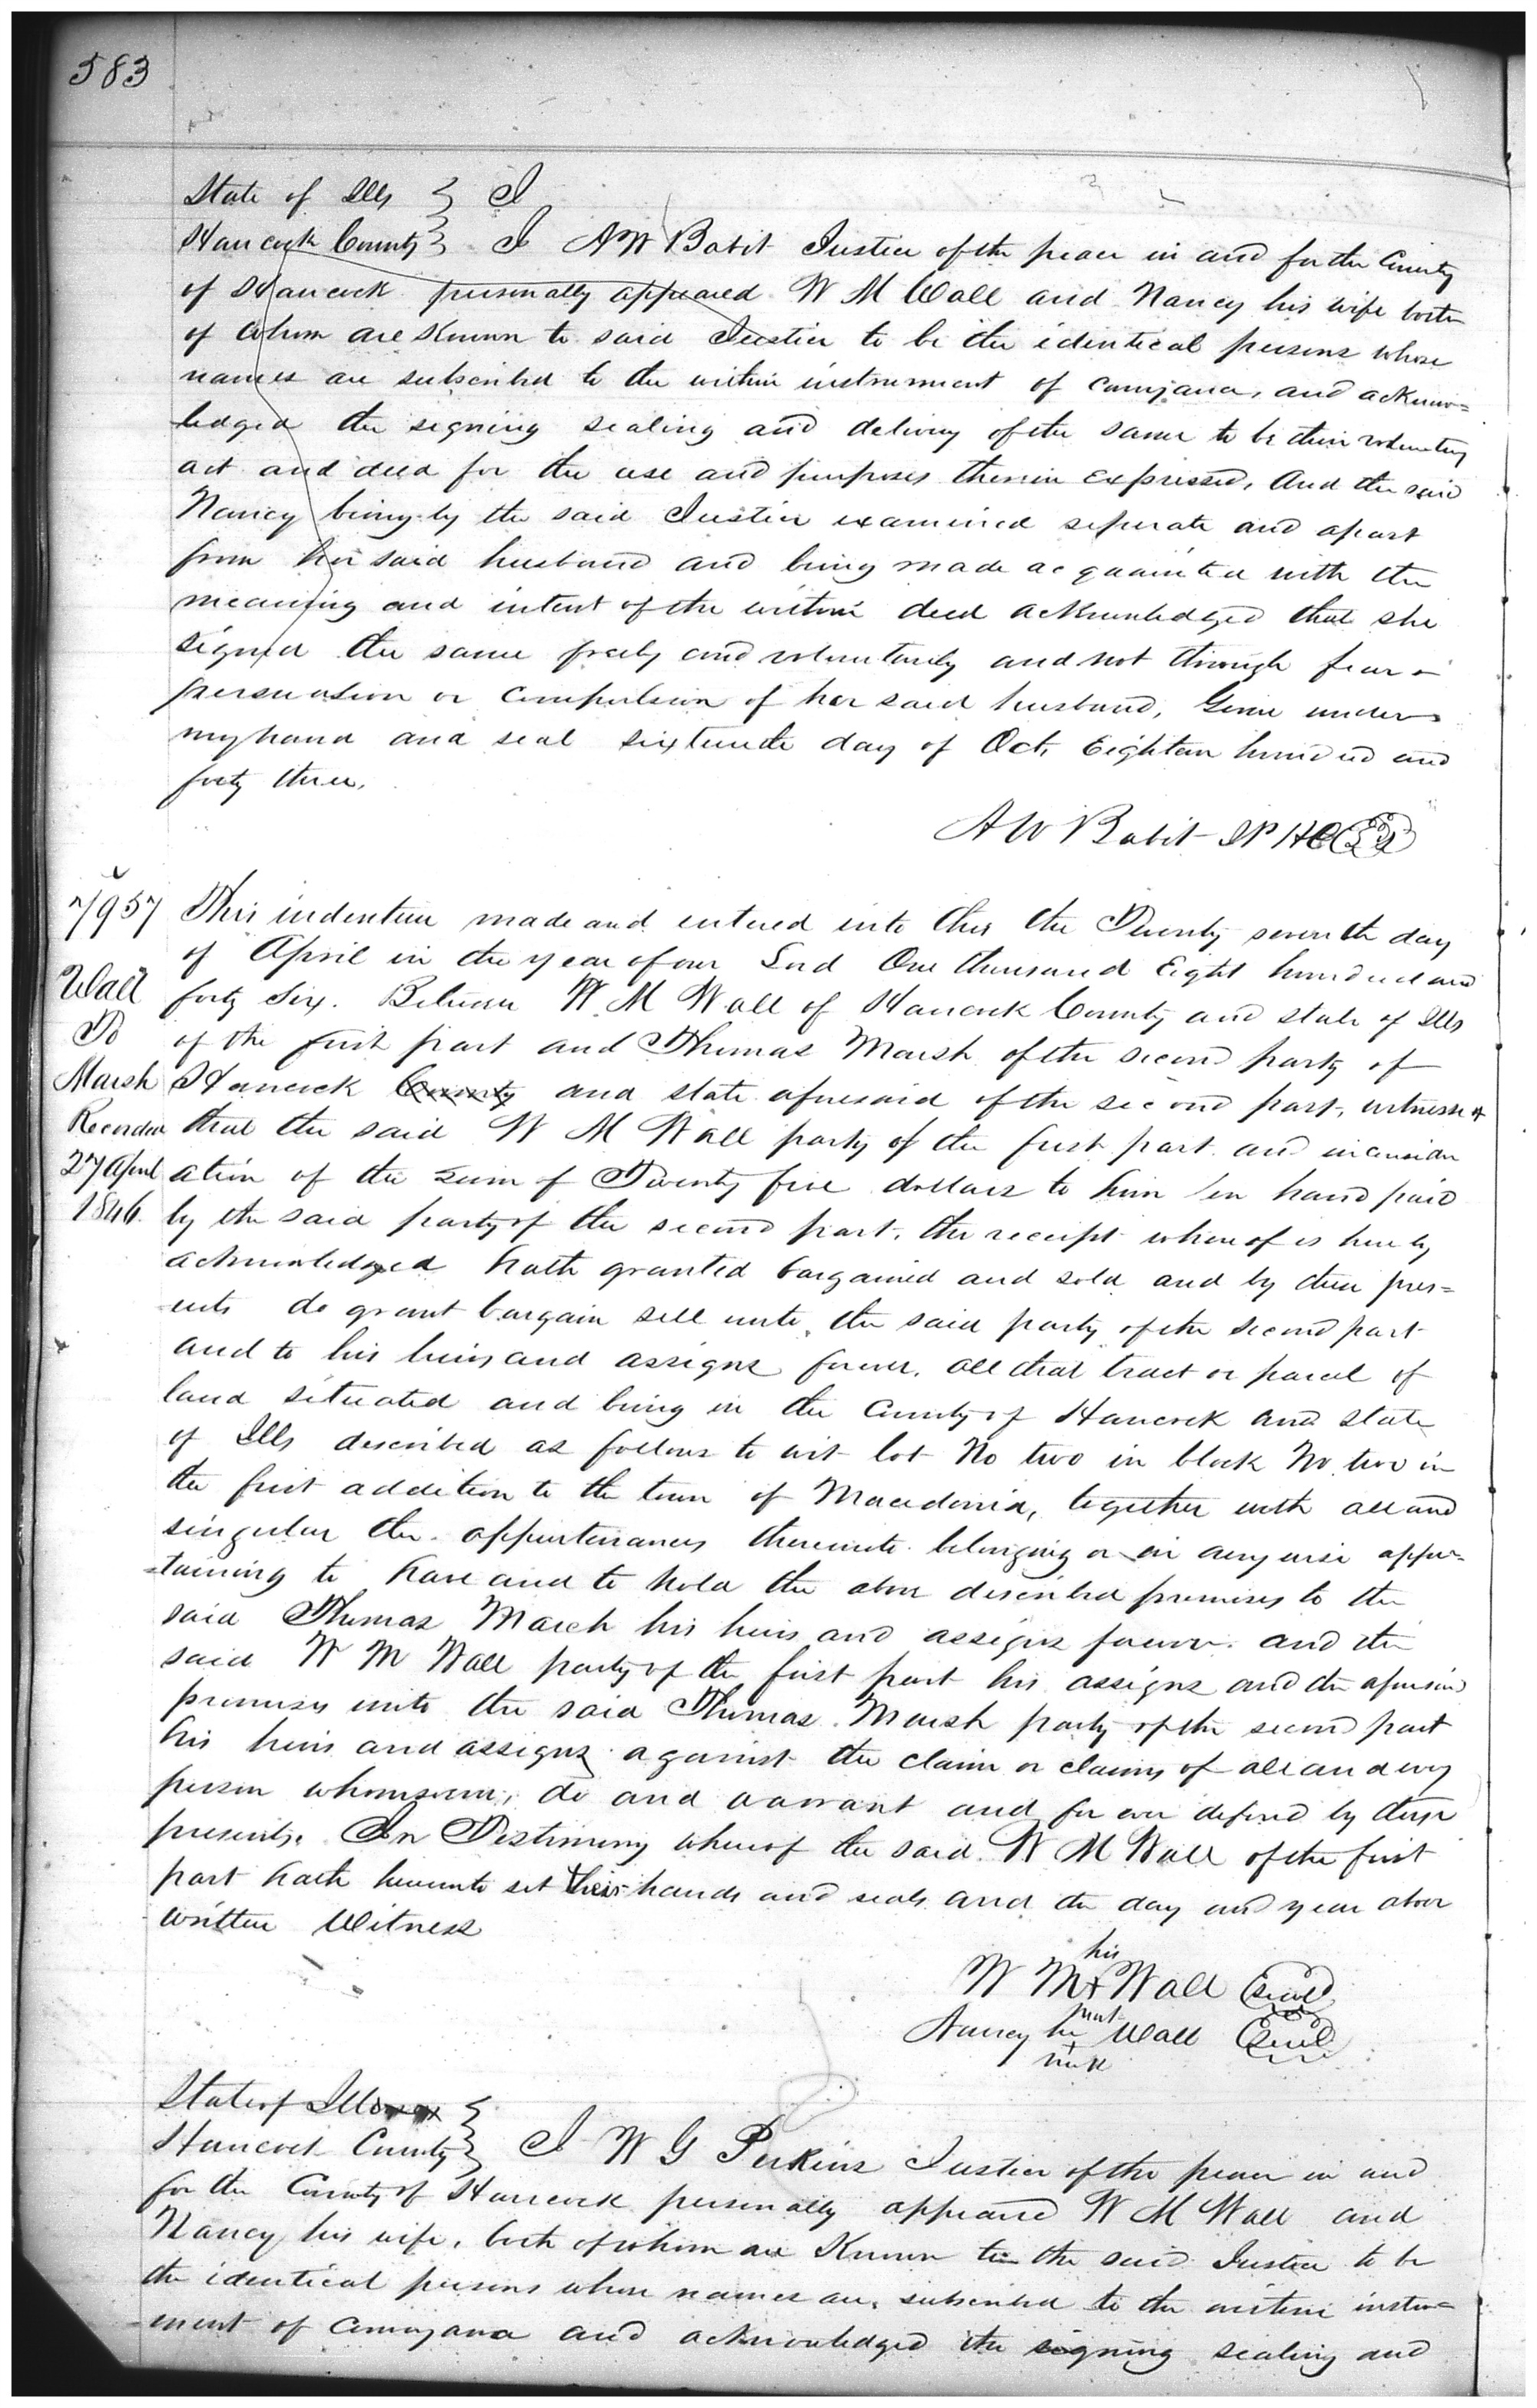 583
State of Ills } I
Hancock County } I A W Babit Justice of the peace in and for the County
of Hancock personally appeared W M Wall and Nancy his wife both
of whom are Known to said Justice to be the identical persons whose
names are subscribed to the within instrument of conveyance, and acknow=
ledged the signing sealing and delivery of the same to be their voluntary
act and deed for the use and purposes therein expressed, And the said
Nancy being by the said Justice examined seperate and apart
from her said husband and being made acquainted with the
meaning and intent of the within deed acknowledged that she
signed the same freely and voluntarily and not through fear or
persuasion or compulsion of her said husband, Given under
my hand and seal sixteenth day of Oct, Eighteen hundred and
forty three,
A W Babit J P H C
7957
Wall
To
Marsh
Recorded
27 April
1846.
This indenture made and entered into this the Twenty seventh day
of April in the year of our Lord One thousand Eight hundred and
forty Six. Between W. M Wall of Hancock County and state of Ills
of the first part and Thomas Marsh of the second party of
Hancock County and state aforesaid of the second part, witnesseth
that the said W M Wall party of the first part and in consider
ation of the sum of Twenty five dollars to him in hand paid
by the said party of the second part, the receipt whereof is hereby
acknowledged hath granted bargained and sold and by these pres=
ents do grant bargain sell unto the said party of the second part
and to his heirs and assigns forever, all that tract or parcel of
land situated and being in the County of Hancock and state
of Ills described as follows to wit lot No two in block No. two in
the first addition to the town of Macedonia, together with all and
singular the appurtenances thereunto belonging or in any wise apper=
=taining to have and to hold the above described premises to the
said Thomas March his heirs and assigns forever. and the
said W M Wall party of the first part his assigns and the aforesaid
premises unto the said Thomas Marsh party of the second part
his heirs and assigns against the claim or claims of all and every
person whomsoever, do and warrant and for ever defend by these
presents. In Testimony whereof the said W M Wall of the first
part hath hereunto set their hands and seals and the day and year above
written Witness
his
W M + Wall Seal
mark
Nancy her Wall Seal
+
mark
State of Ills }
Hancock County } I W G Perkins Justice of the peace in and
for the County of Hancock personally appeared W M Wall and
Nancy his wife, both of whom are Known to the said Justice to be
the identical persons whose names are, subscribed to the within instru=
ment of conveyance and acknowledged the signing sealing and